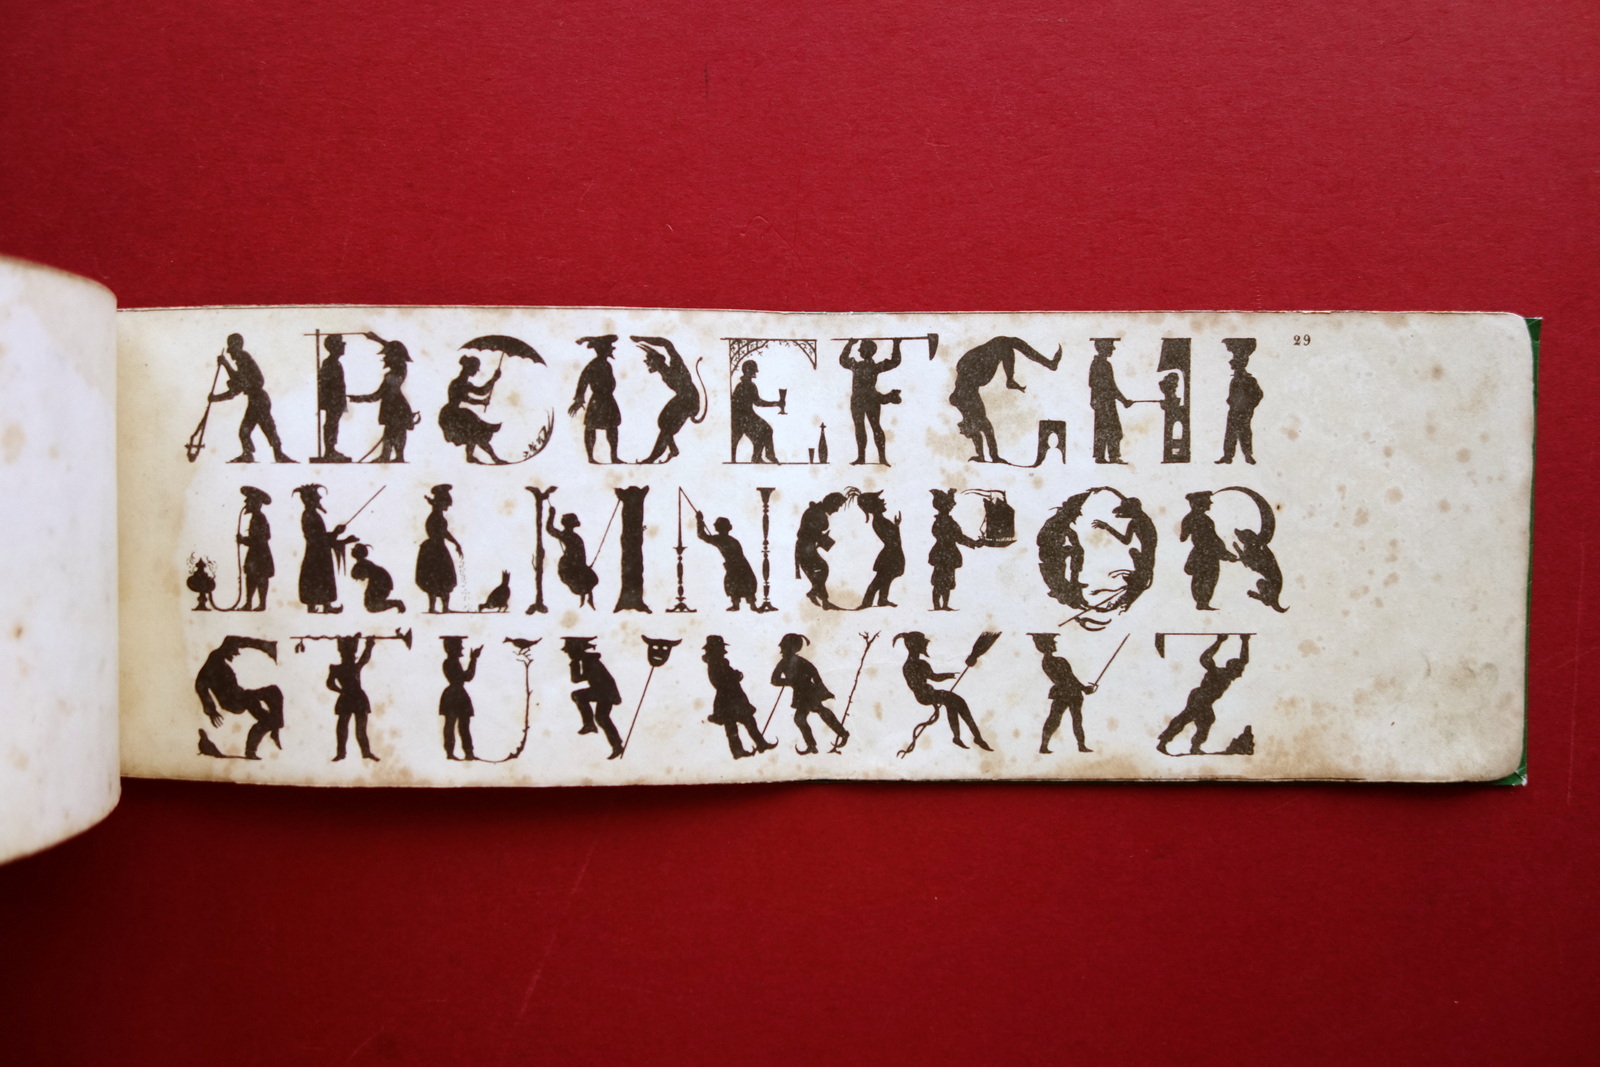 29
ABCDEFGHI
JKLMNOPQR
STUVWXYZ